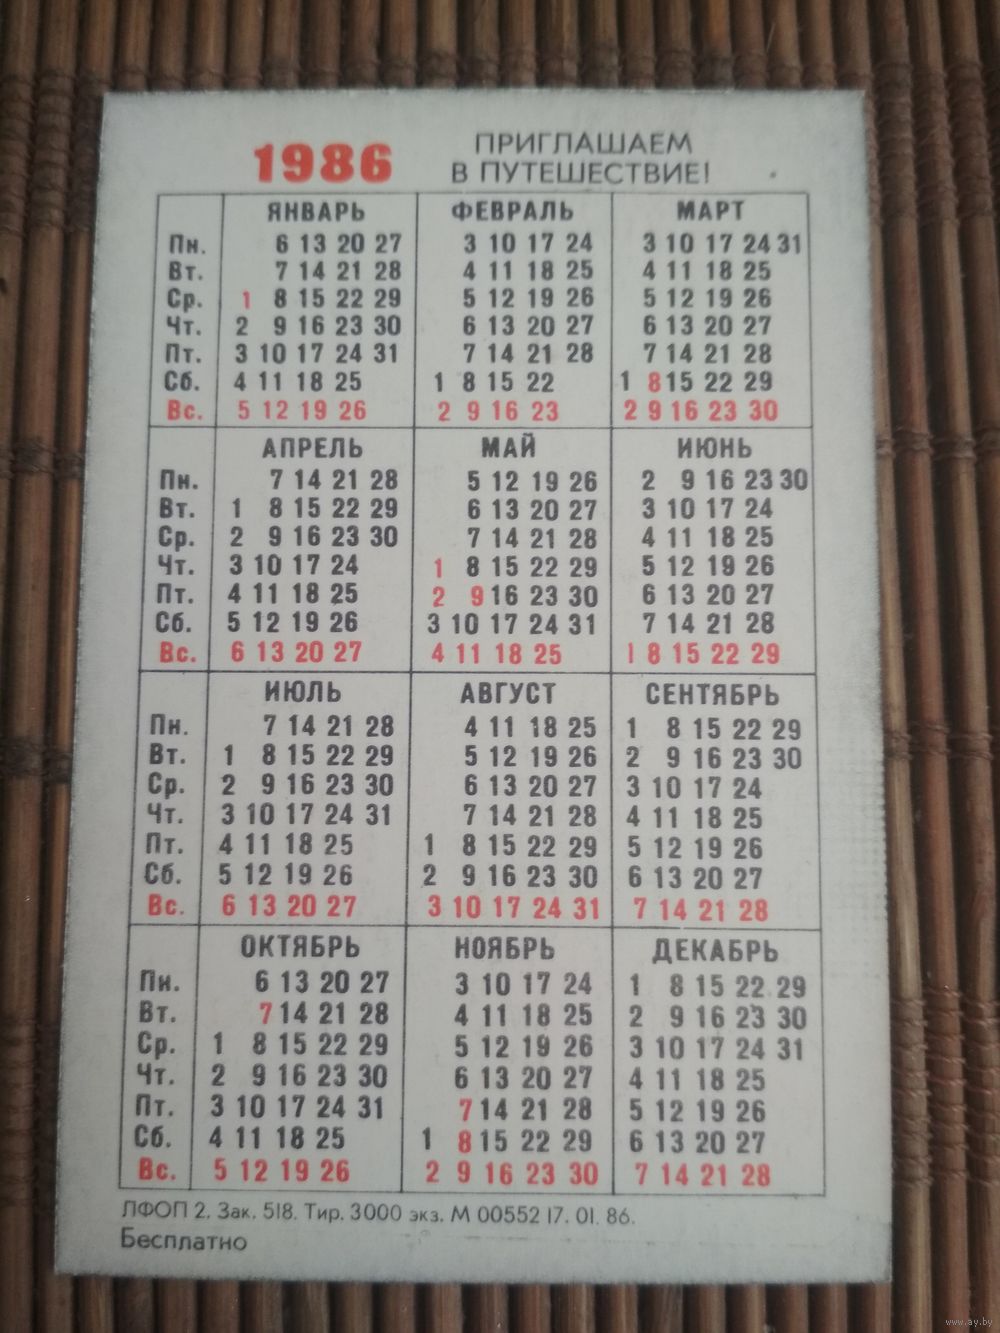 1986 ПРИГЛАШАЕМ
В ПУТЕШЕСТВИЕ!
ЯНВАРЬ ФЕВРАЛЬ МАРТ
Пн. 6 13 20 27 3 10 17 24 3 10 17 24 31
Вт. 7 14 21 28 4 11 18 25 4 11 18 25
Ср. 1 8 15 22 29 5 12 19 26 5 12 19 26
Чт. 2 9 16 23 30 6 13 20 27 6 13 20 27
Пт. 3 10 17 24 31 7 14 21 28 7 14 21 28
Сб. 4 11 18 25 1 8 15 22 1 8 15 22 29
Вс. 5 12 19 26 2 9 16 23 2 9 16 23 30
АПРЕЛЬ МАЙ ИЮНЬ
Пн. 7 14 21 28 5 12 19 26 2 9 16 23 30
Вт. 1 8 15 22 29 6 13 20 27 3 10 17 24
Ср. 2 9 16 23 30 7 14 21 28 4 11 18 25
Чт. 3 10 17 24 1 8 15 22 29 5 12 19 26
Пт. 4 11 18 25 2 9 16 23 30 6 13 20 27
Сб. 5 12 19 26 3 10 17 24 31 7 14 21 28
Вс. 6 13 20 27 4 11 18 25 1 8 15 22 29
ИЮЛЬ АВГУСТ СЕНТЯБРЬ
Пн. 7 14 21 28 4 11 18 25 1 8 15 22 29
Вт. 1 8 15 22 29 5 12 19 26 2 9 16 23 30
Ср. 2 9 16 23 30 6 13 20 27 3 10 17 24
Чт. 3 10 17 24 31 7 14 21 28 4 11 18 25
Пт. 4 11 18 25 1 8 15 22 29 5 12 19 26
Сб. 5 12 19 26 2 9 16 23 30 6 13 20 27
Вс. 6 13 20 27 3 10 17 24 31 7 14 21 28
ОКТЯБРЬ НОЯБРЬ ДЕКАБРЬ
Пн. 6 13 20 27 3 10 17 24 1 8 15 22 29
Вт. 7 14 21 28 4 11 18 25 2 9 16 23 30
Ср. 1 8 15 22 29 5 12 19 26 3 10 17 24 31
Чт. 2 9 16 23 30 6 13 20 27 4 11 18 25
Пт. 3 10 17 24 31 7 14 21 28 5 12 19 26
Сб. 4 11 18 25 1 8 15 22 29 6 13 20 27
Вс. 5 12 19 26 2 9 16 23 30 7 14 21 28
ЛФОП 2. Зак. 518. Тир. 3000 экз. М 00552 17. 01. 86.
Бесплатно
www.ay.by